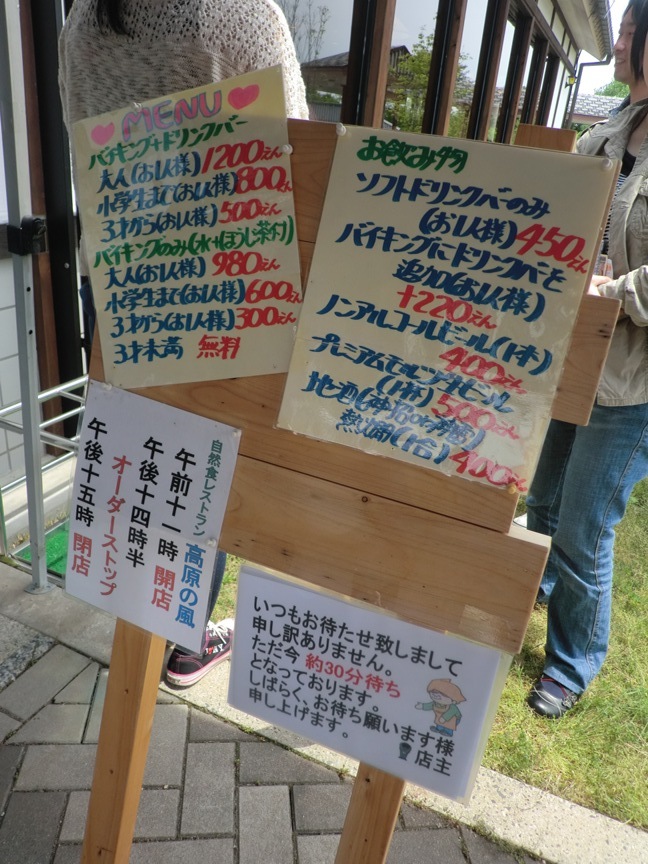 MENU
バイキング+ドリンクバー
大人(お1人様)1200えん
小学生まで(お1人様)800えん
3才から(お1人様)500えん
バイキングのみ(水・ほうじ茶付)
大人(お1人様)980えん
小学生まで(お1人様)600えん
3才から(お1人様)300えん
3才未満 無料
お飲み物
ソフトドリンクバーのみ
(お1人様)450えん
バイキングにドリンクバーを
追加(お1人様)
+220えん
ノンアルコールビール(1本)
400えん
プレミアムモルツ生ビール
(1杯)500えん
地酒
熱い燗(1合)400えん
自然食レストラン 高原の風
午前十一時 開店
午後十四時半
オーダーストップ
午後十五時 閉店
いつもお待たせ致しまして
申し訳ありません。
ただ今 約30分待ち
となっております。
しばらく、お待ち願います様
申し上げます。
店主